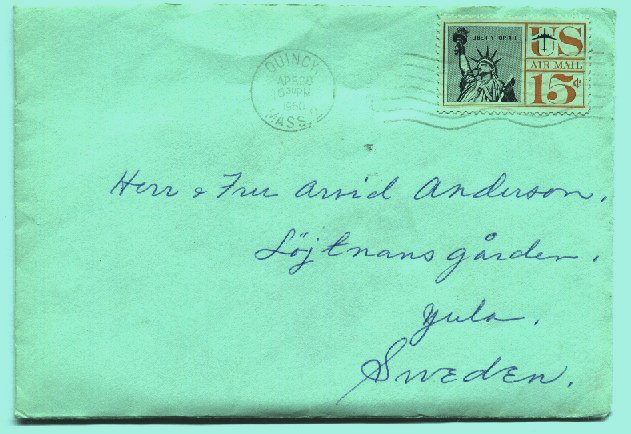 QUINCY
APR
PM
1960
MASS.
US
AIR MAIL
15¢
Herr & Fru Arvid Anderson.
Löjtnans gården.
Yula.
Sweden.